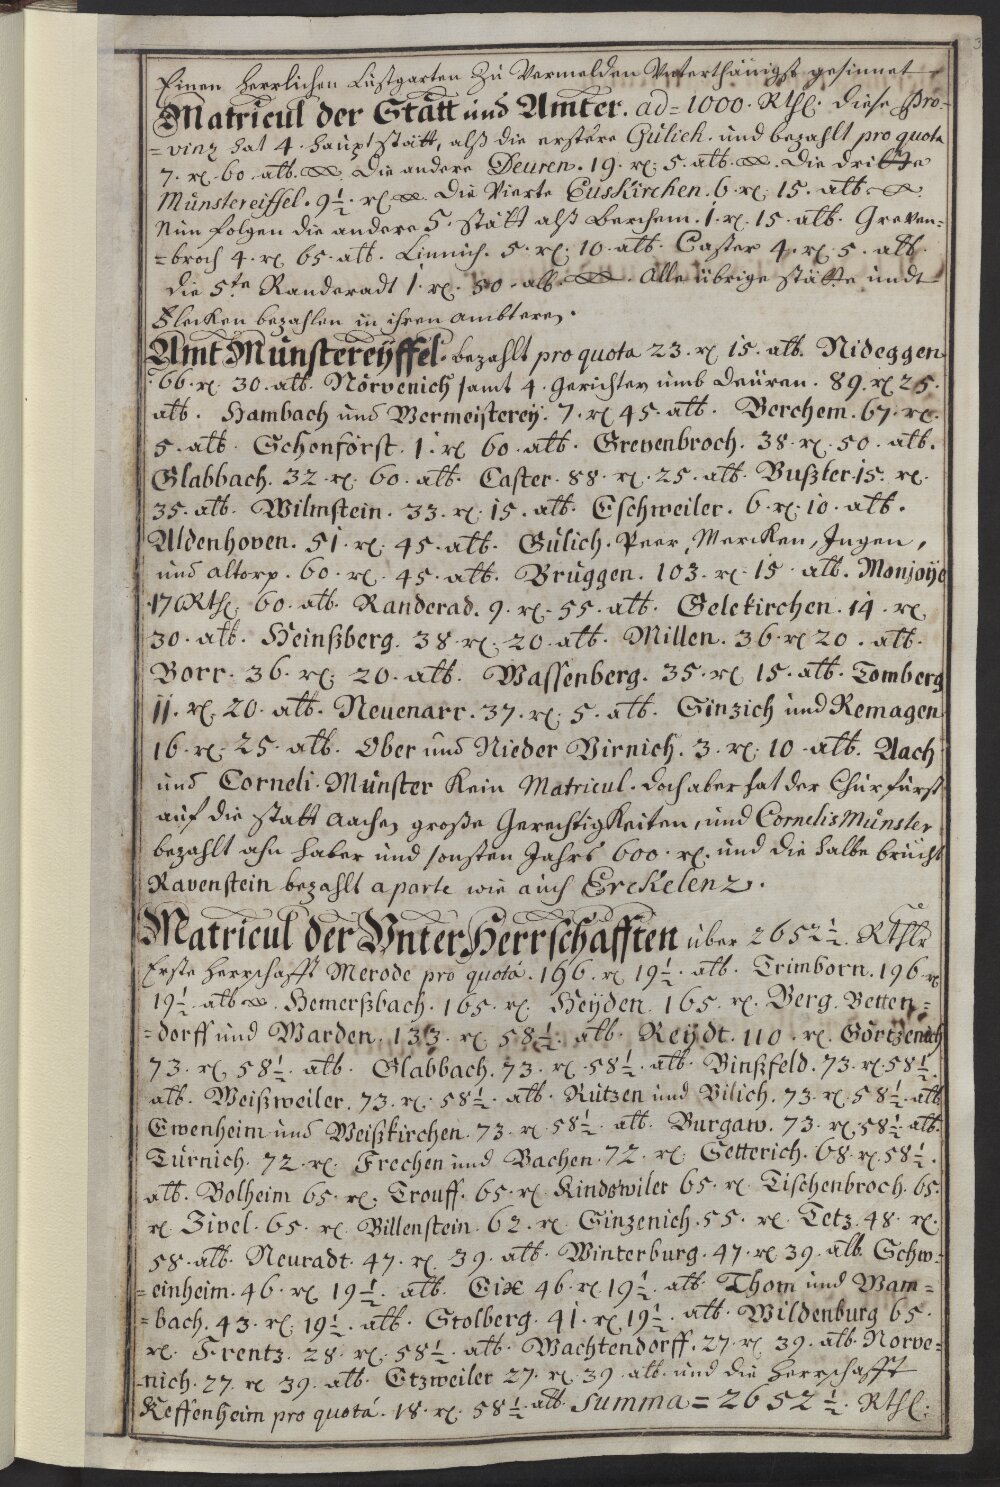 Einen herrlichen Lustgarten Zu Vermelden Unterthänigst gesinnet
Matricul der Stätt und Amter. ad = 1000. Rthl. diese Pro-
= vinz hat 4. hauptstätt, alß die erstere Gülich. und bezahlt pro quota
7. rl. 60. alb. Die andere Deuren. 19. rl. 5. alb. Die dritte
Münstereiffel. 9½. rl. Die Vierte Euskirchen. 6. rl. 15. alb.
Nun folgen die andere 5. Stätt alß Berchem. 1. rl. 15. alb. Greven-
= broch 4. rl. 65. alb. Linnich. 5. rl. 10. alb. Caster 4. rl. 5. alb.
die 5te Randeradt 1. rl. 50. alb. Alle übrige Stätte undt
Flecken bezahlen in ihren ambteren.
Amt Münstereÿffel. bezahlt pro quota 23. rl. 15. alb. Nideggen
66. rl. 30. alb. Nörvenich samt 4. Gerichter umb deüren. 89. rl. 25.
alb. Hambach und Vermeisterey. 7. rl. 45. alb. Berchem. 67. rl.
5. alb. Schonforst. 1. rl. 60. alb. Grevenbroch. 38. rl. 50. alb.
Glabbach. 32. rl. 60. alb. Caster. 88. rl. 25. alb. Bußler. 15. rl.
35. alb. Wilmstein. 33. rl. 15. alb. Eschweiler. 6. rl. 10. alb.
Aldenhoven. 51. rl. 45. alb. Gülich. Peer, Mercken, Ingen,
und altorp. 60. rl. 45. alb. Bruggen. 103. rl. 15. alb. Monjoye
176 Rthl. 60. alb. Randerad. 9. rl. 55. alb. Gelekirchen. 14. rl.
30. alb. Heinßberg. 38. rl. 20. alb. Millen. 36. rl. 20. alb.
Borr. 36. rl. 20. alb. Wassenberg. 35. rl. 15. alb. Tomberg
11. rl. 20. alb. Neuenarr. 37. rl. 5. alb. Sinzich und Remagen
16. rl. 25. alb. Ober und Nieder Virnich. 3. rl. 10. alb. Aach
und Corneli-Münster Kein Matricul. doch aber hat der Churfürst
auf die statt Aachen große Gerechtigkeiten, und Cornelis Münster
bezahlt ahn haber und sonsten Jahrs 600. rl. und die halbe brücht
Ravenstein bezahlt aparte wie auch Erckelenz.
Matricul der Unter Herrschafften über 2652½. Rthlr
Erste Herrschafft Merode pro quotá. 196. rl. 19½. alb. Trimborn. 196. rl
19½. alb. Hemerßbach. 165. rl. Heÿden. 165. rl. Berg. Betten =
= dorff und Warden. 133. rl. 58½. alb. Reÿdt. 110. rl. Görtzenich
73. rl. 58½. alb. Glabbach. 73. rl. 58½. alb. Binßfeld. 73. rl. 58½.
alb. Weißweiler. 73. rl. 58½. alb. Rutzen und Vilich. 73. rl. 58½. alb
Ewenheim und Weißkirchen. 73. rl. 58½. alb. Burgaw. 73. rl. 58½. alb.
Türnich. 72. rl. Frechen und Bachen. 72. rl. Setterich. 68. rl. 58½.
alb. Bolheim 65. rl. Trouff. 65. rl. Kindswiler 65. rl. Tischenbroch. 65.
rl. Zivel. 65. rl. Billenstein. 62. rl. Sinzenich. 55. rl. Tetz. 48. rl.
58. alb. Neuradt. 47. rl. 39. alb. Winterburg. 47. rl. 39. alb. Schw-
= einheim. 46. rl. 19½. alb. Eix 46. rl. 19½. alb. Thom und Wam =
= bach. 43. rl. 19½. alb. Stolberg. 41. rl. 19½. alb. Wildenburg 65.
rl. Frentz. 28. rl. 58½. alb. Wachtendorff. 27. rl. 39. alb. Norve =
= nich. 27. rl. 39. alb. Etzweiler 27. rl. 39. alb. und die Herrschafft
Keffenheim pro quotá. 18. rl. 58½. alb. Summa = 2652½. Rthl: